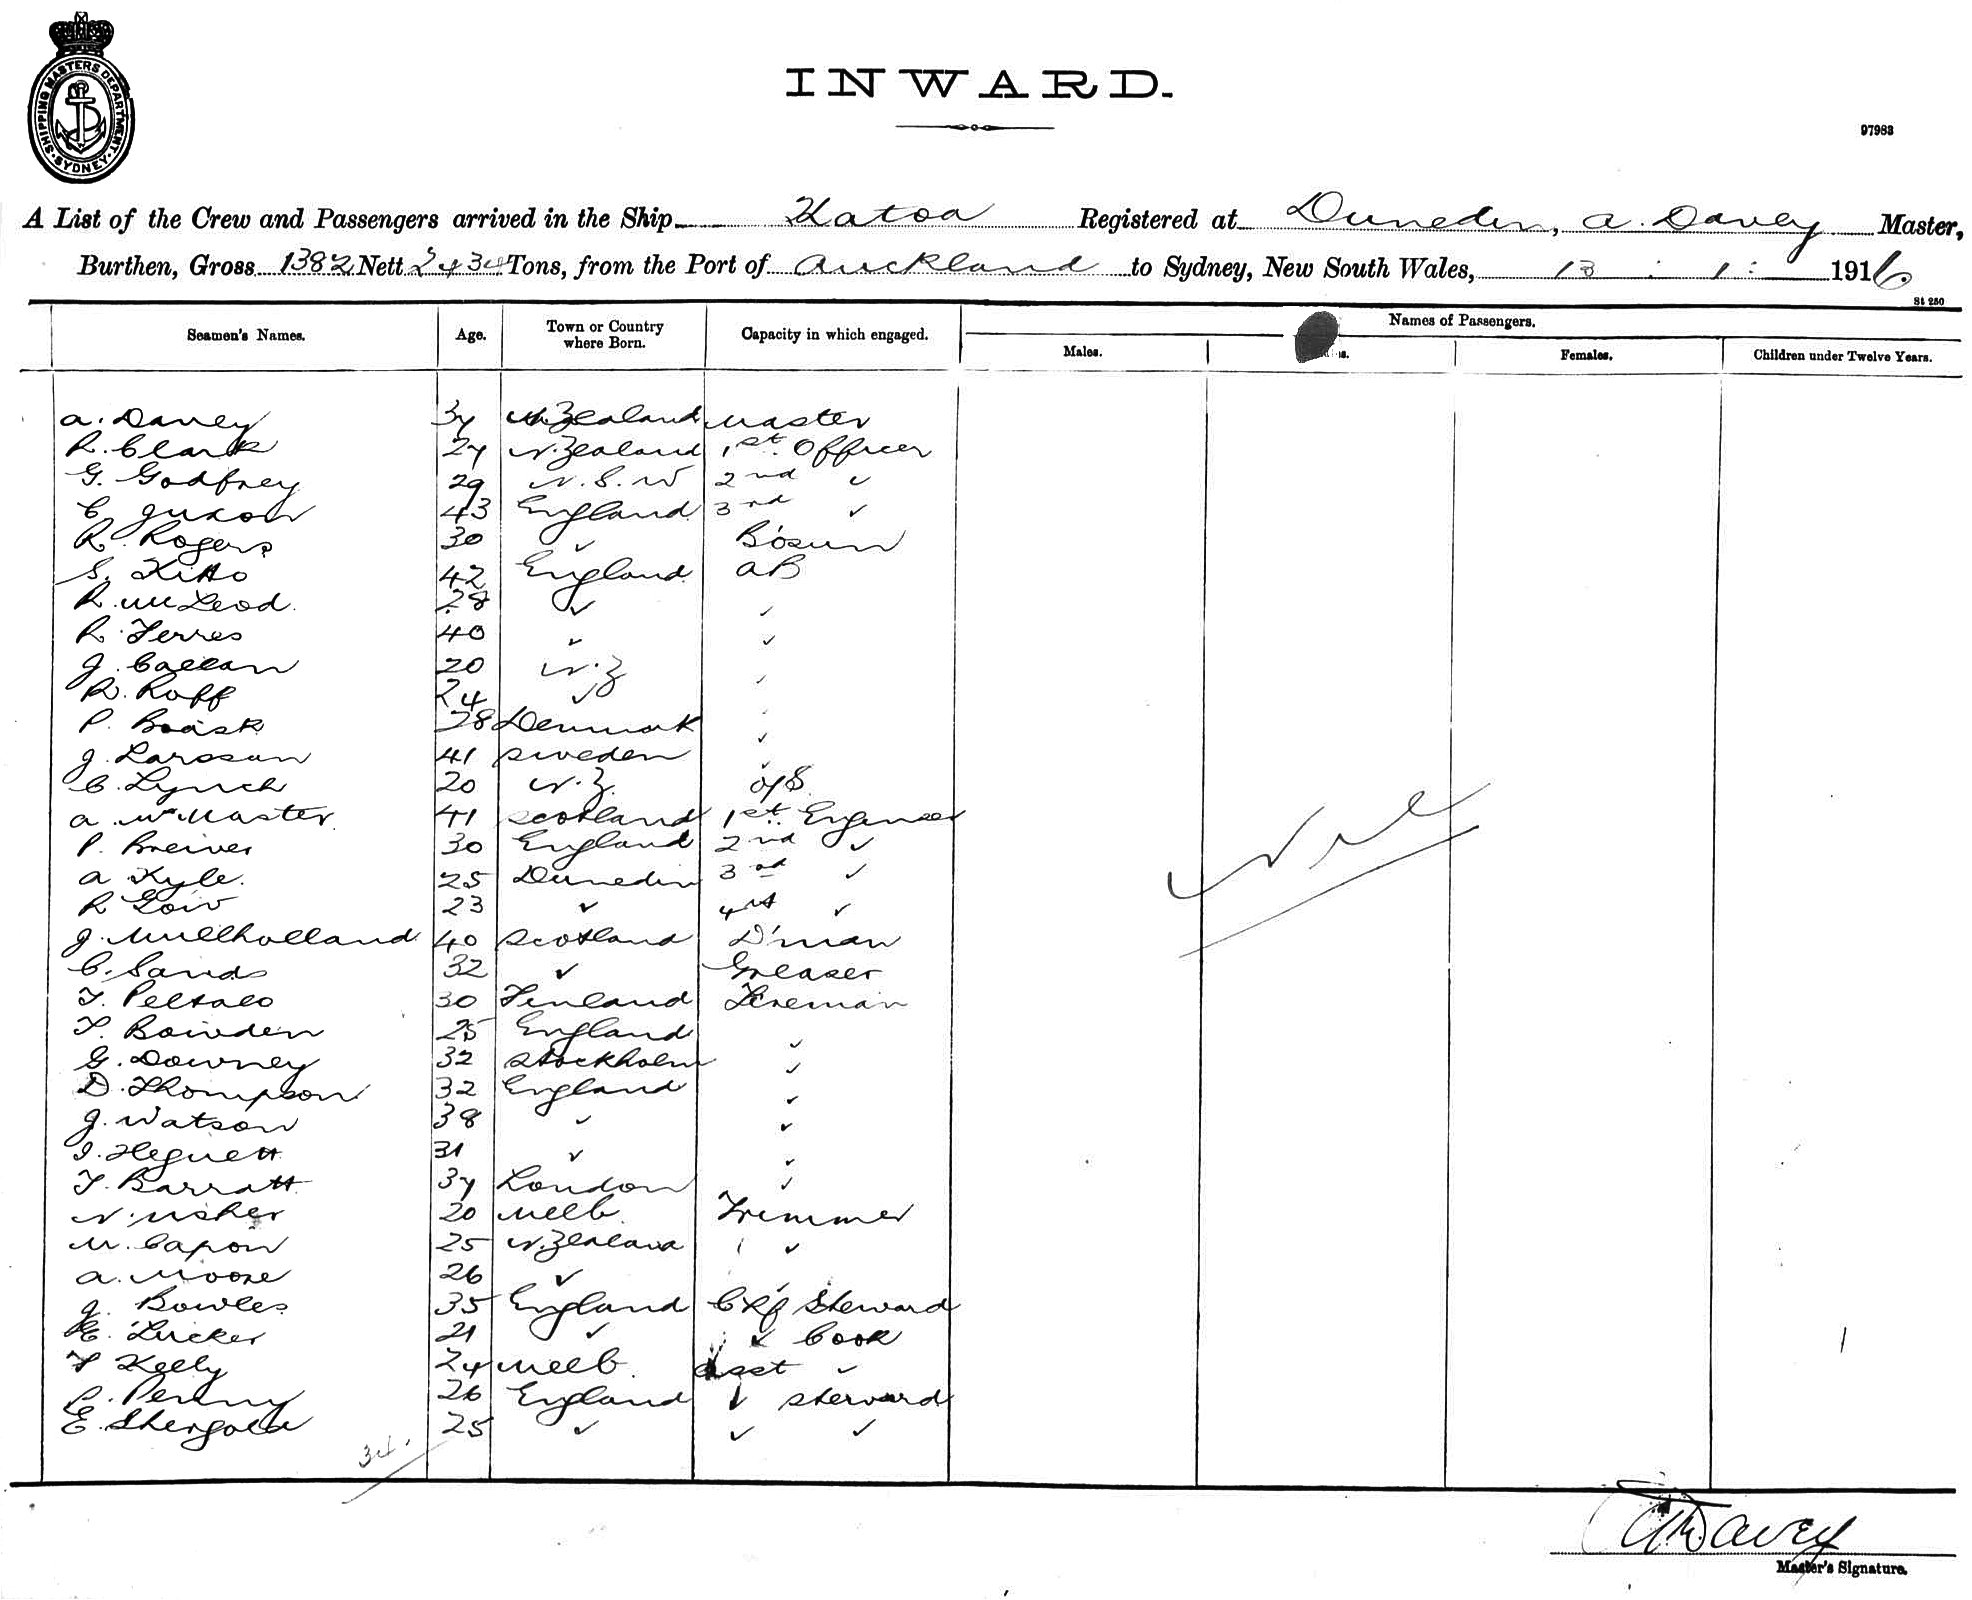 SHIPPING MASTERS DEPARTMENT · SYDNEY ·
INWARD.
97983
A List of the Crew and Passengers arrived in the Ship Katoa Registered at Dunedin, A. Davey Master,
Burthen, Gross 1382 Nett 2434 Tons, from the Port of Auckland to Sydney, New South Wales, 13 : 1 : 1916
St 250
Seamen's Names. Age. Town or Country where Born. Capacity in which engaged. Names of Passengers.
Males. Females. Children under Twelve Years.
A. Davey 37 N. Zealand Master
R. Clark 27 N. Zealand 1st Officer
G. Godfrey 29 N. S. W 2nd ✓
C Juxon 43 England 3rd ✓
R. Rogers 30 ✓ Bosun
S. Kitto 42 England AB
R. McLeod. 28 ✓ ✓
R. Ferres 40 ✓ ✓
J. Callan 20 N. Z ✓
R. Roff 24 ✓ ✓
P. Baask 28 Denmark ✓
J. Larsson 41 Sweden ✓
C. Lynch 20 N. Z. O/S
A. McMaster 41 Scotland 1st. Engineer
P. Breiver 30 England 2nd ✓
A Kyle. 25 Dunedin 3rd ✓
R Gow 23 ✓ 4th ✓
J. Mullholland 40 Scotland D'man
C. Sands 32 ✓ Greaser
T. Peltalo 30 Finland Fireman
T. Bowden 25 England ✓
G. Downey 32 Stockholm ✓
D. Thompson 32 England ✓
J. Watson 38 ✓ ✓
J. Hegnett 31 ✓ ✓
T. Barratt 37 London ✓
N. Usher 20 Melb. Trimmer
M. Capon 25 N. Zealand ✓
A. Moore 26 ✓ ✓
J. Bowles 35 England Chf Steward
E. Tucker 21 ✓ ✓ Cook
T Kelly 24 Melb. Asst ✓
P. Penny 26 England ✓ Steward
E. Shergold 25 ✓ ✓ ✓
Nil
34.
A. Davey
Master's Signature.